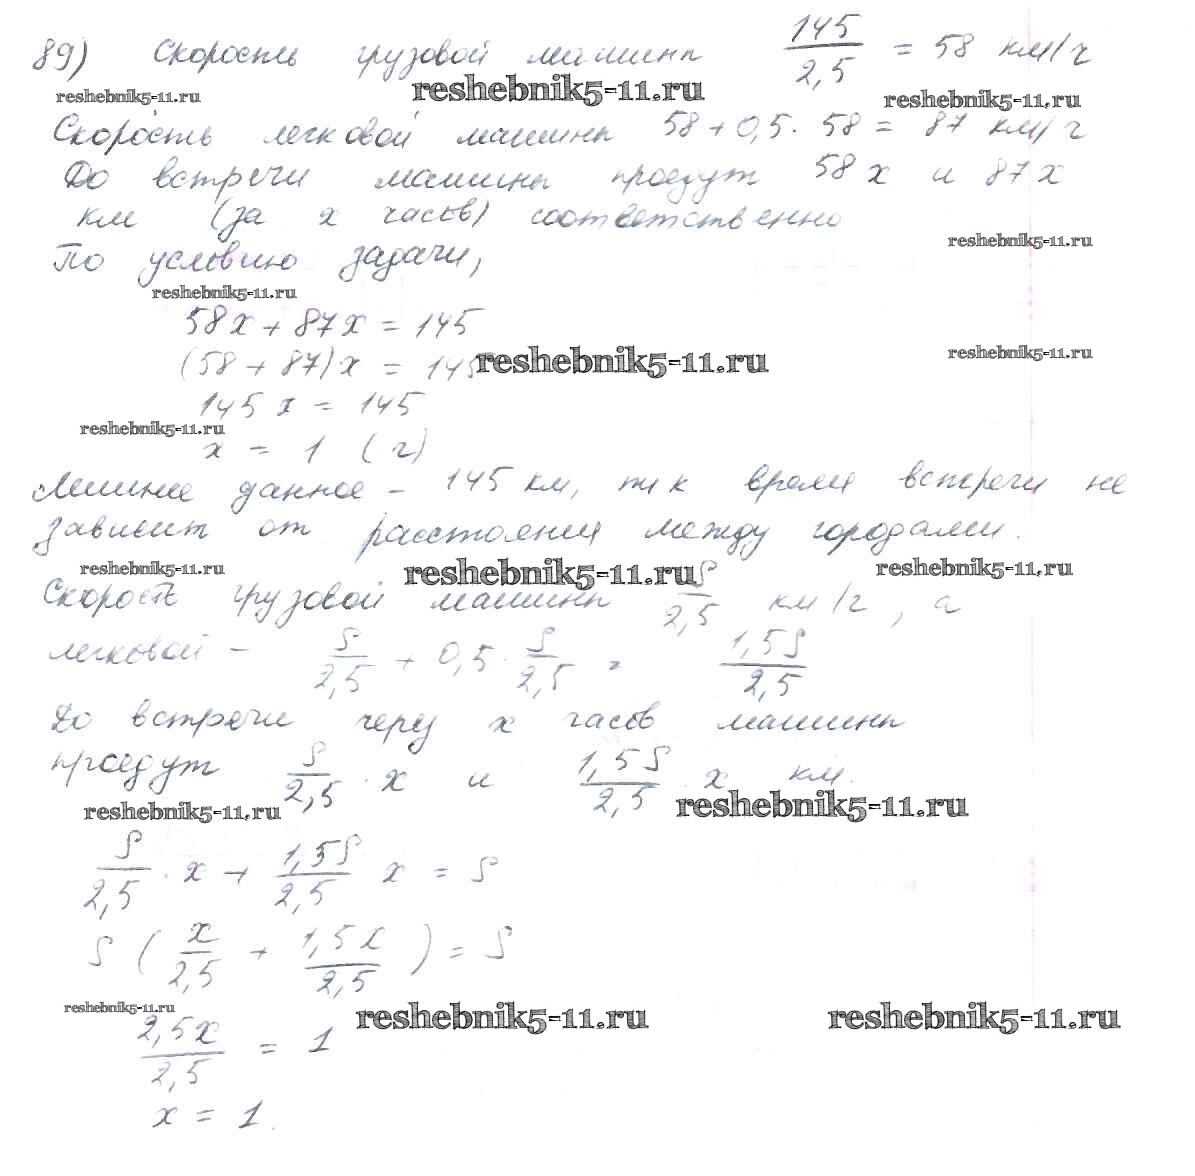 89) Скорость грузовой машины 145/2,5 = 58 км/ч
reshebnik5-11.ru reshebnik5-11.ru reshebnik5-11.ru
Скорость легковой машины 58 + 0,5 · 58 = 87 км/ч
До встречи машины проедут 58x и 87x
км (за x часов) соответственно
reshebnik5-11.ru
По условию задачи,
reshebnik5-11.ru
58x + 87x = 145
(58 + 87)x = 145
reshebnik5-11.ru reshebnik5-11.ru
145x = 145
reshebnik5-11.ru
x = 1 (ч)
Лишнее данное - 145 км, т к время встречи не
зависит от расстояния между городами.
reshebnik5-11.ru reshebnik5-11.ru reshebnik5-11.ru
Скорость грузовой машины S/2,5 км/ч, а
легковой - S/2,5 + 0,5 · S/2,5 = 1,5S/2,5
До встречи через x часов машины
проедут S/2,5 · x и 1,5S/2,5 · x км.
reshebnik5-11.ru reshebnik5-11.ru
S/2,5 · x + 1,5S/2,5 x = S
S (x/2,5 + 1,5x/2,5) = S
reshebnik5-11.ru reshebnik5-11.ru reshebnik5-11.ru
2,5x/2,5 = 1
x = 1.